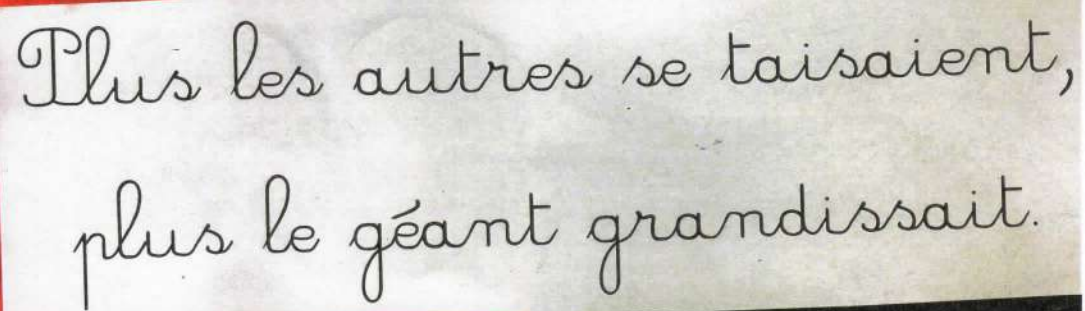 Plus les autres se taisaient,
plus le géant grandissait.